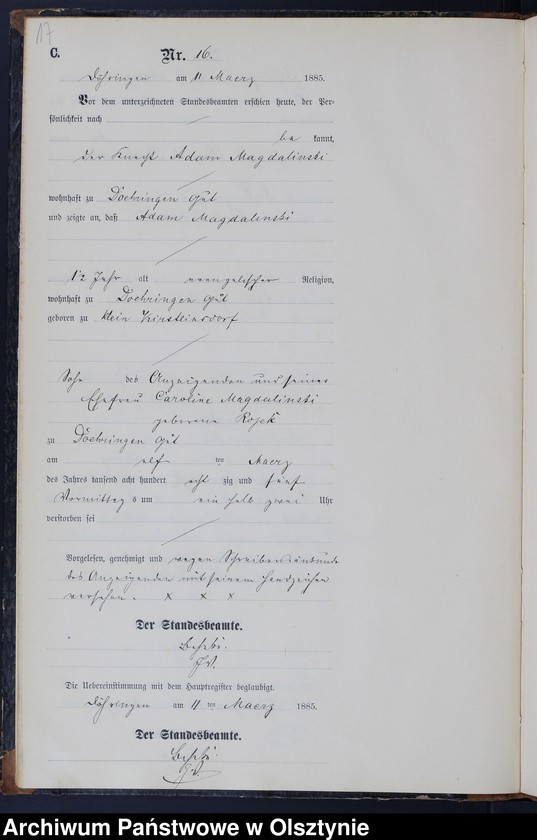 17
C.
Nr. 16.
Döhringen am 11 Maerz 1885.
Vor dem unterzeichneten Standesbeamten erschien heute, der Per-
sönlichkeit nach
be kannt,
der Knecht Adam Magdalinski
wohnhaft zu Doehringen Gut
und zeigte an, daß Adam Magdalinski
1½ Jahr alt evangelischer Religion,
wohnhaft zu Doehringen Gut
geboren zu Klein Kirsteinsdorf
Sohn des Anzeigenden und seiner
Ehefrau Caroline Magdalinski
geborene Rojek
zu Doehringen Gut
am elf ten Maerz
des Jahres tausend acht hundert acht zig und fünf
Vormittag s um ein halb zwei Uhr
verstorben sei
Vorgelesen, genehmigt und wegen Schreibensunkunde
des Anzeigenden mit seinem Handzeichen
versehen. x x x
Der Standesbeamte.
Die Uebereinstimmung mit dem Hauptregister beglaubigt.
Döhringen am 11 ten Maerz 1885.
Der Standesbeamte.
Archiwum Państwowe w Olsztynie